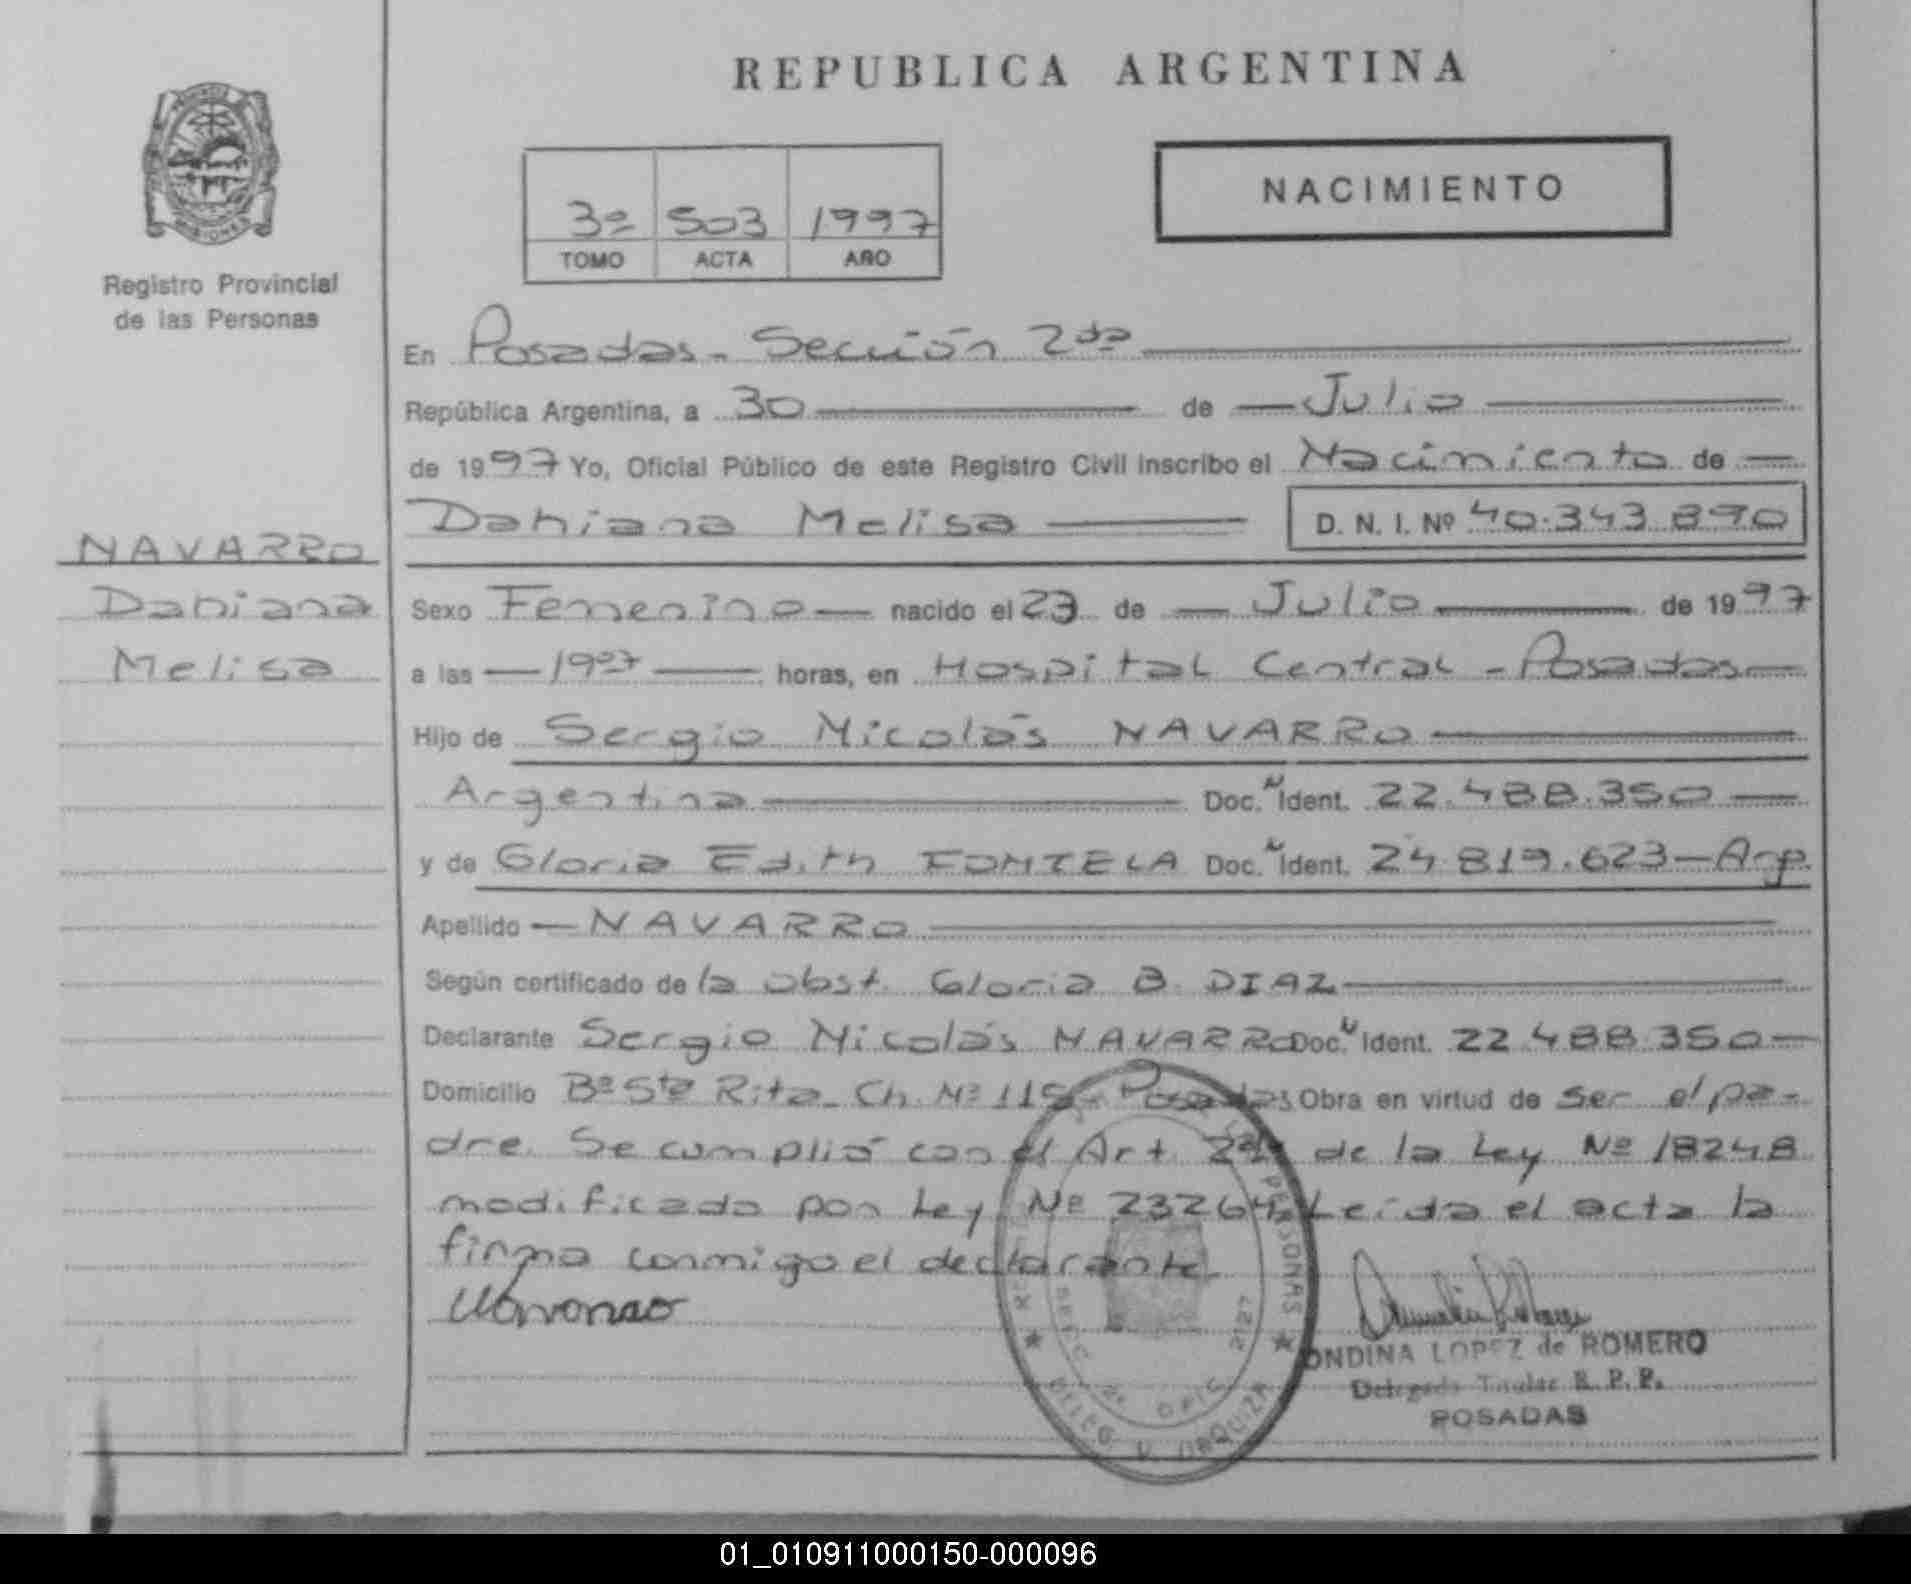 REPUBLICA ARGENTINA
NACIMIENTO
3º 503 1997
TOMO ACTA AÑO
MISIONES
Registro Provincial
de las Personas
En Posadas - Sección 2da
República Argentina, a 30 de Julio
de 1997 Yo, Oficial Público de este Registro Civil inscribo el Nacimiento de
Dahiana Melisa D. N. I. Nº 40.343.890
NAVARRO
Dahiana
Melisa
Sexo Femenino nacido el 23 de Julio de 1997
a las 1907 horas, en Hospital Central - Posadas
Hijo de Sergio Nicolás NAVARRO
Argentina Doc. N Ident. 22.488.350
y de Gloria Edith FONTELA Doc. N Ident. 24.819.623 - Arg.
Apellido NAVARRO
Según certificado de la obst. Gloria B. DIAZ
Declarante Sergio Nicolás NAVARRO Doc. N Ident. 22.488.350
Domicilio Bº Sta Rita - Ch. Nº 115 - Posadas Obra en virtud de ser el pa-
dre. Se cumplió con el Art. de la Ley Nº 18248
modificado por Ley Nº 23264 Leída el acta la
firma conmigo el declarante.
Navarro
PERSONAS
SECC. 2ª OFIC. 2127
DELEG. V. URQUIZA
ONDINA LOPEZ de ROMERO
Delegada Titular R. P. P.
POSADAS
01_010911000150-000096